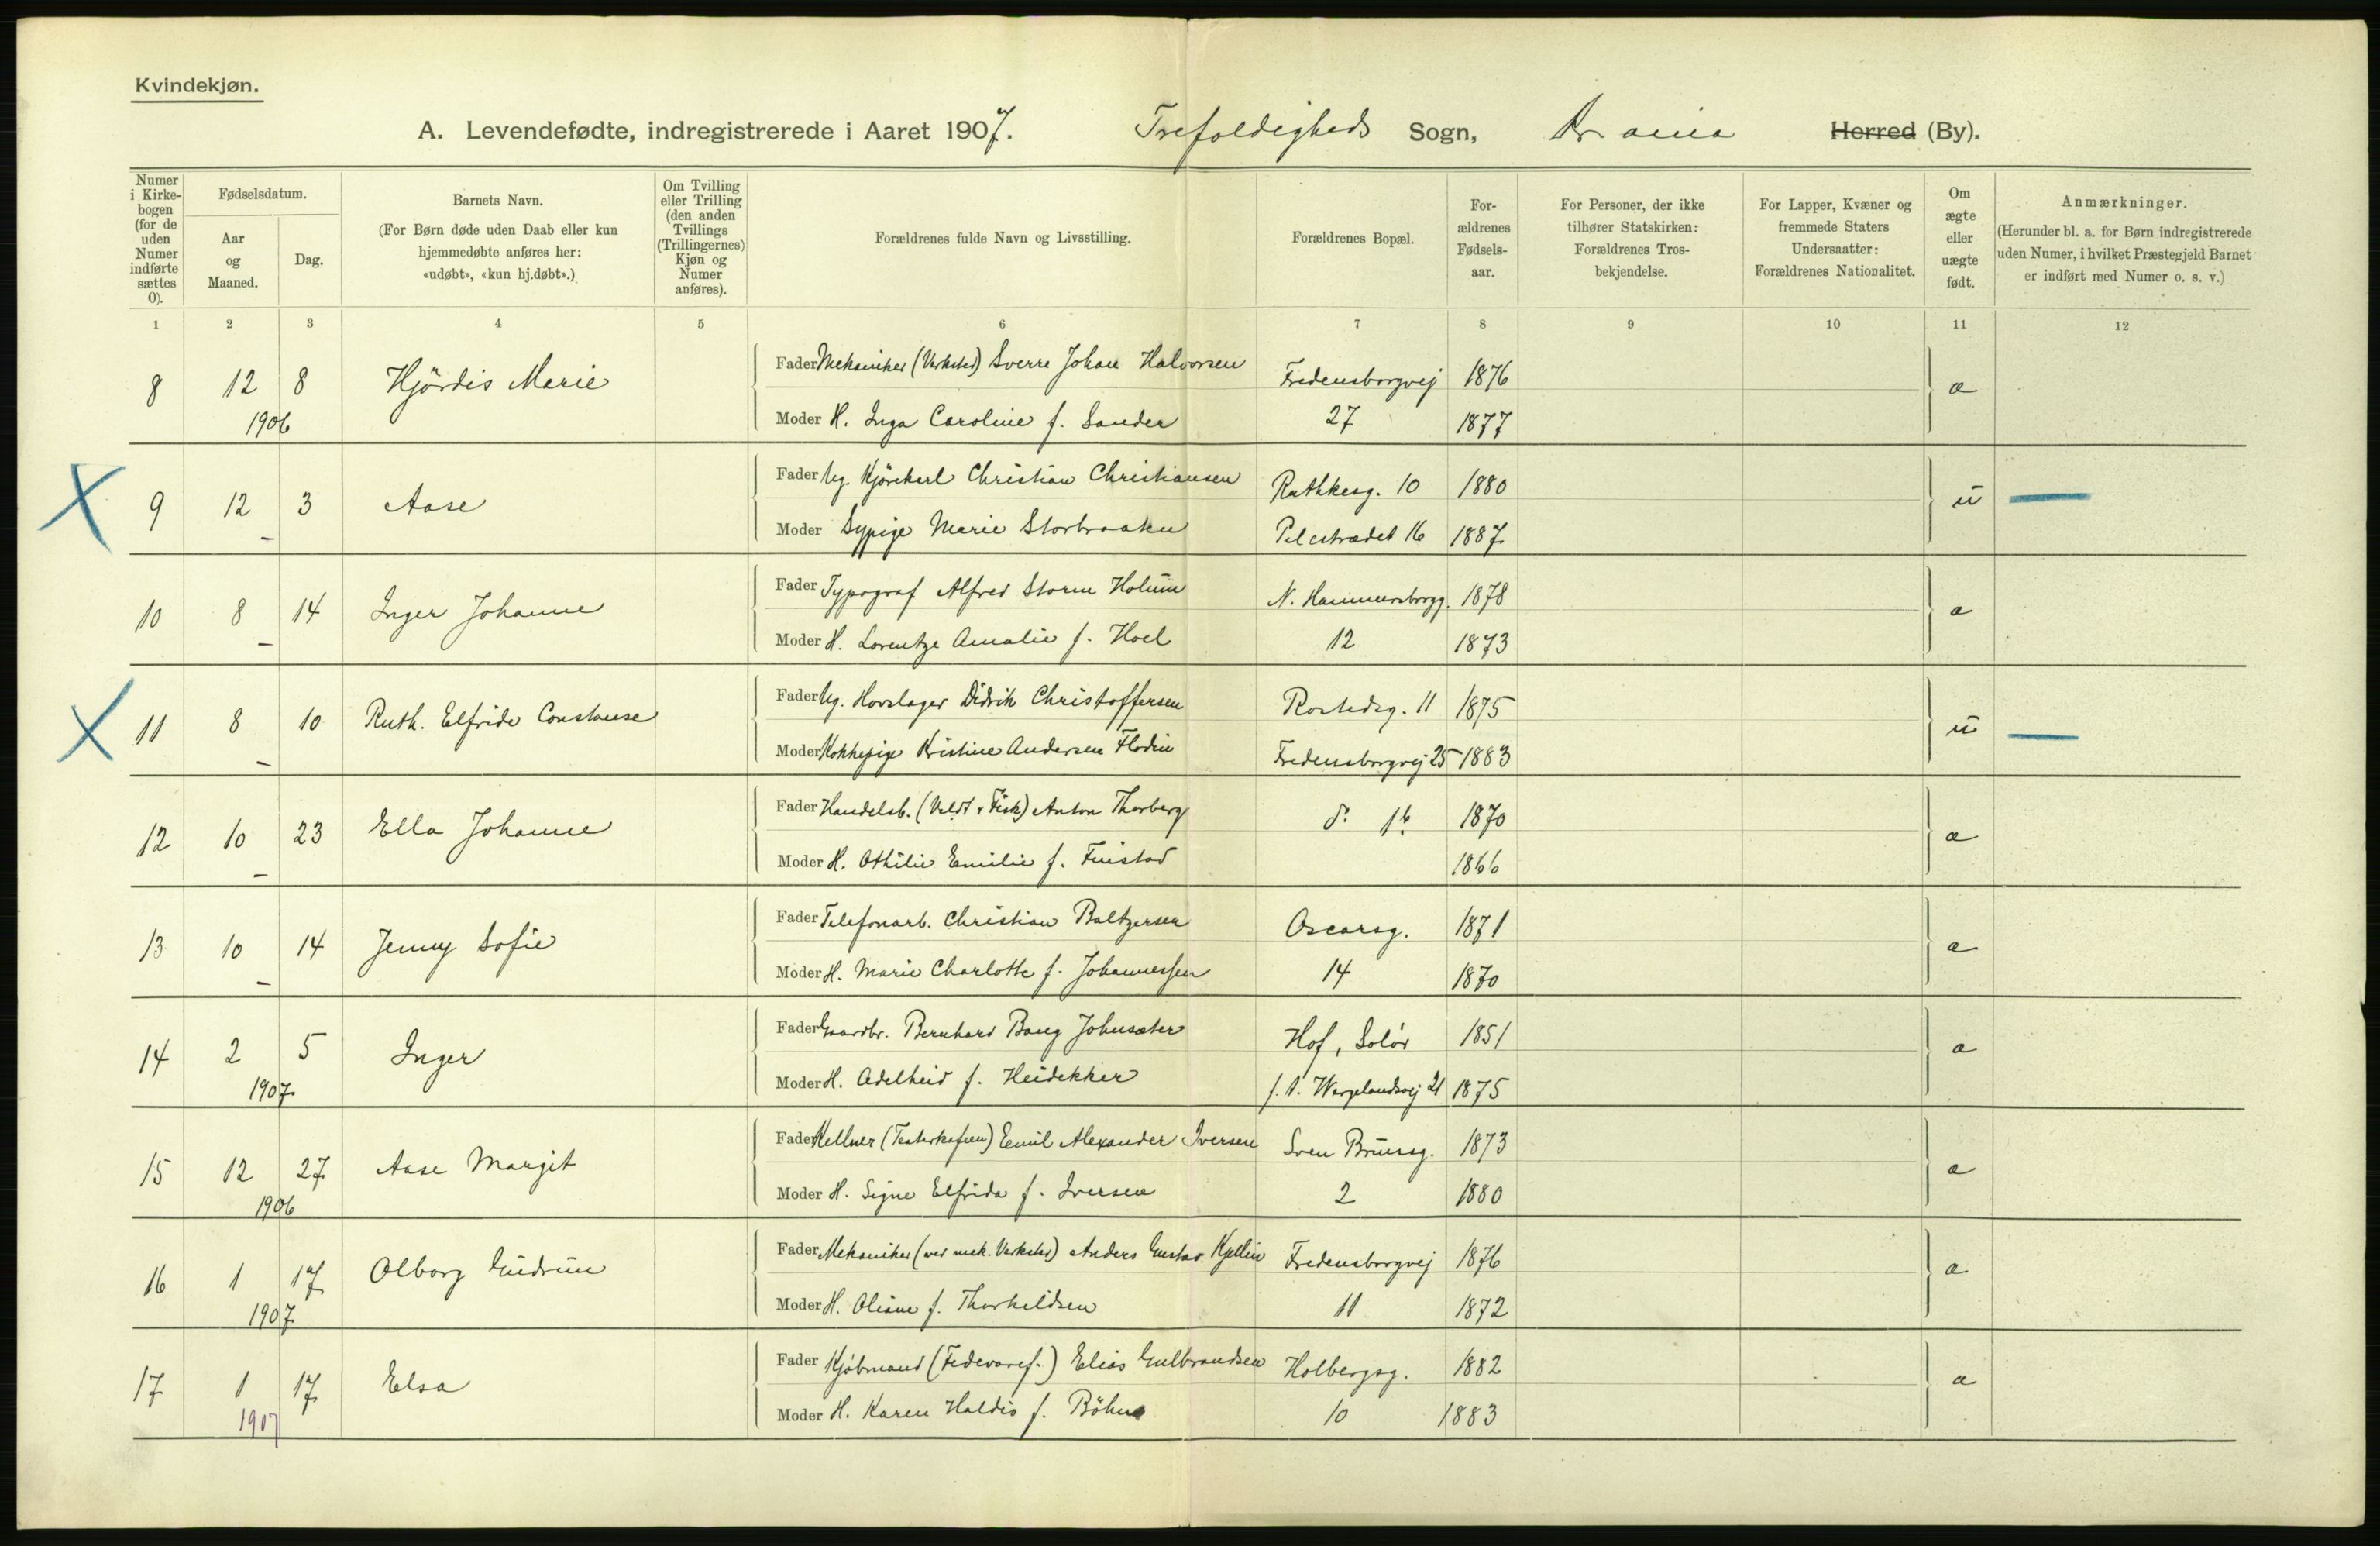 Kvindekjøn.
A. Levendefødte, indregistrerede i Aaret 1907. Trefoldigheds Sogn, Kr.ania Herred (By).
Numer i Kirkebogen (for de uden Numer indførte sættes 0).
Fødselsdatum.
Aar og Maaned.
Dag.
Barnets Navn.
(For Børn døde uden Daab eller kun hjemmedøbte anføres her: «udøbt», «kun hj.døbt».)
Om Tvilling eller Trilling (den anden Tvillings (Trillingernes) Kjøn og Numer anføres).
Forældrenes fulde Navn og Livsstilling.
Forældrenes Bopæl.
Forældrenes Fødselsaar.
For Personer, der ikke tilhører Statskirken: Forældrenes Trosbekjendelse.
For Lapper, Kvæner og fremmede Staters Undersaatter: Forældrenes Nationalitet.
Om ægte eller uægte født.
Anmærkninger.
(Herunder bl. a. for Børn indregistrerede uden Numer, i hvilket Præstegjeld Barnet er indført med Numer o. s. v.)
1 2 3 4 5 6 7 8 9 10 11 12
8 12 8 Hjördis Marie Fader Mekaniker (Verksted) Sverre Johan Halvorsen Fredensborgvej 1876 æ
1906 Moder H. Inga Caroline f. Sander 27 1877
X 9 12 3 Aase Fader Ug. Kjörekarl Christian Christiansen Rathkesg. 10 1880 u —
– Moder Sypige Marie Storbraaten Pilestrædet 16 1887
10 8 14 Inger Johanne Fader Typograf Alfred Storm Holum N. Hammersborgg. 1878 æ
– Moder H. Lorentze Amalie f. Hoel 12 1873
X 11 8 10 Ruth. Elfride Constanse Fader Ug. Hovslager Didrik Christoffersen Rostedsg. 11 1875 u —
– Moder Kokkepige Kristine Andersen Flodin Fredensborgvej 25 1883
12 10 23 Ella Johanne Fader Handelsb. (Vildt & Fisk) Anton Thorberg do 1b. 1870 æ
– Moder H. Othilie Emilie f. Finstad 1866
13 10 14 Jenny Sofie Fader Telefonarb. Christian Baltzersen Oscarsg. 1871 æ
– Moder H. Marie Charlotte f. Johannessen 14 1870
14 2 5 Inger Fader Gaardbr. Bernhard Bang Johnsæter Hof, Solör 1851 æ
1907 Moder H. Adelheid f. Heidekker f. t. Wergelandsvej 21 1875
15 12 27 Aase Margit Fader Kellner (Teaterkafeen) Emil Alexander Iversen Sven Brunsg. 1873 æ
1906 Moder H. Signe Elfrida f. Iversen 2 1880
16 1 17 Olborg Gudrun Fader Mekaniker (ved mek. Verksted) Anders Gustav Kjellin Fredensborgvej 1876 æ
1907 Moder H. Oliane f. Thorkildsen 11 1872
17 1 17 Elsa Fader Kjöbmand (Fedevaref.) Elias Gulbrandsen Holbergsg. 1882 æ
1907 Moder H. Karen Haldis f. Böhn 10 1883